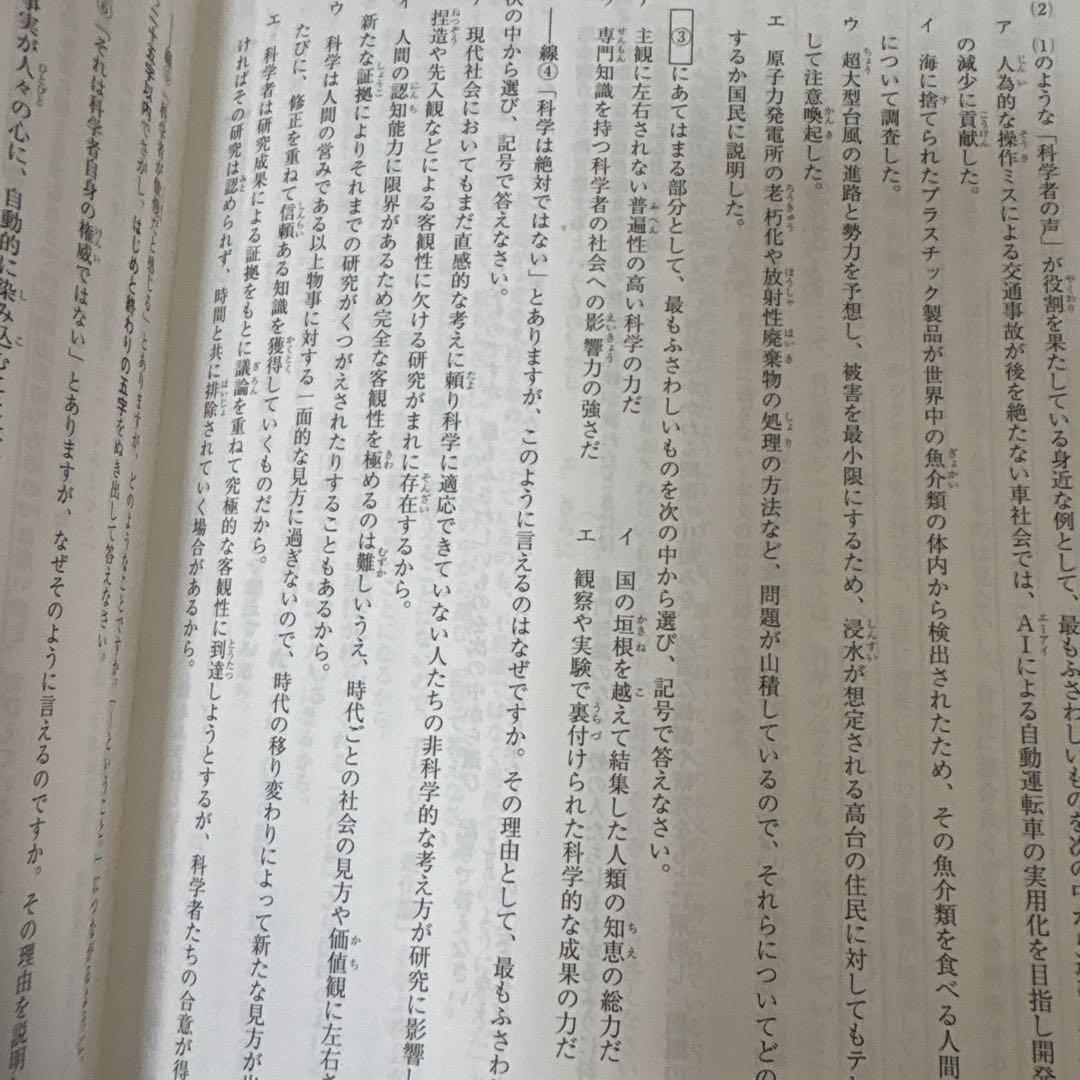 (2) (1)のような「科学者の声」が役割を果たしている身近な例として、最もふさわしいものを次の中から選び
ア 人為的な操作ミスによる交通事故が後を絶たない車社会では、AIによる自動運転車の実用化を目指し開発
の減少に貢献した。
イ 海に捨てられたプラスチック製品が世界中の魚介類の体内から検出されたため、その魚介類を食べる人間
について調査した。
ウ 超大型台風の進路と勢力を予想し、被害を最小限にするため、浸水が想定される高台の住民に対してもテ
して注意喚起した。
エ 原子力発電所の老朽化や放射性廃棄物の処理の方法など、問題が山積しているので、それらについてどの
するか国民に説明した。
③にあてはまる部分として、最もふさわしいものを次の中から選び、記号で答えなさい。
主観に左右されない普遍性の高い科学の力だ
イ 国の垣根を越えて結集した人類の知恵の総力だ
専門知識を持つ科学者の社会への影響力の強さだ
エ 観察や実験で裏付けられた科学的な成果の力だ
――線④「科学は絶対ではない」とありますが、このように言えるのはなぜですか。その理由として、最もふさわ
次の中から選び、記号で答えなさい。
現代社会においてもまだ直感的な考えに頼り科学に適応できていない人たちの非科学的な考え方が研究に影響し
捏造や先入観などによる客観性に欠ける研究がまれに存在するから。
イ 人間の認知能力に限界があるため完全な客観性を極めるのは難しいうえ、時代ごとの社会の見方や価値観に左右さ
新たな証拠によりそれまでの研究がくつがえされたりすることもあるから。
ウ 科学は人間の営みである以上物事に対する一面的な見方に過ぎないので、時代の移り変わりによって新たな見方が出
たびに、修正を重ねて信頼ある知識を獲得していくものだから。
エ 科学者は研究成果による証拠をもとに議論を重ねて究極的な客観性に到達しようとするが、科学者たちの合意が得
ければその研究は認められず、時間と共に排除されていく場合があるから。
とありますが、どのようなことですか。
二十五字以内でさがし、はじめと終わりの五字をぬき出して答えなさい。
⑥「それは科学者自身の権威ではない」とありますが、なぜそのように言えるのですか。その理由を説明
事実が人々の心に、自動的に染み込む